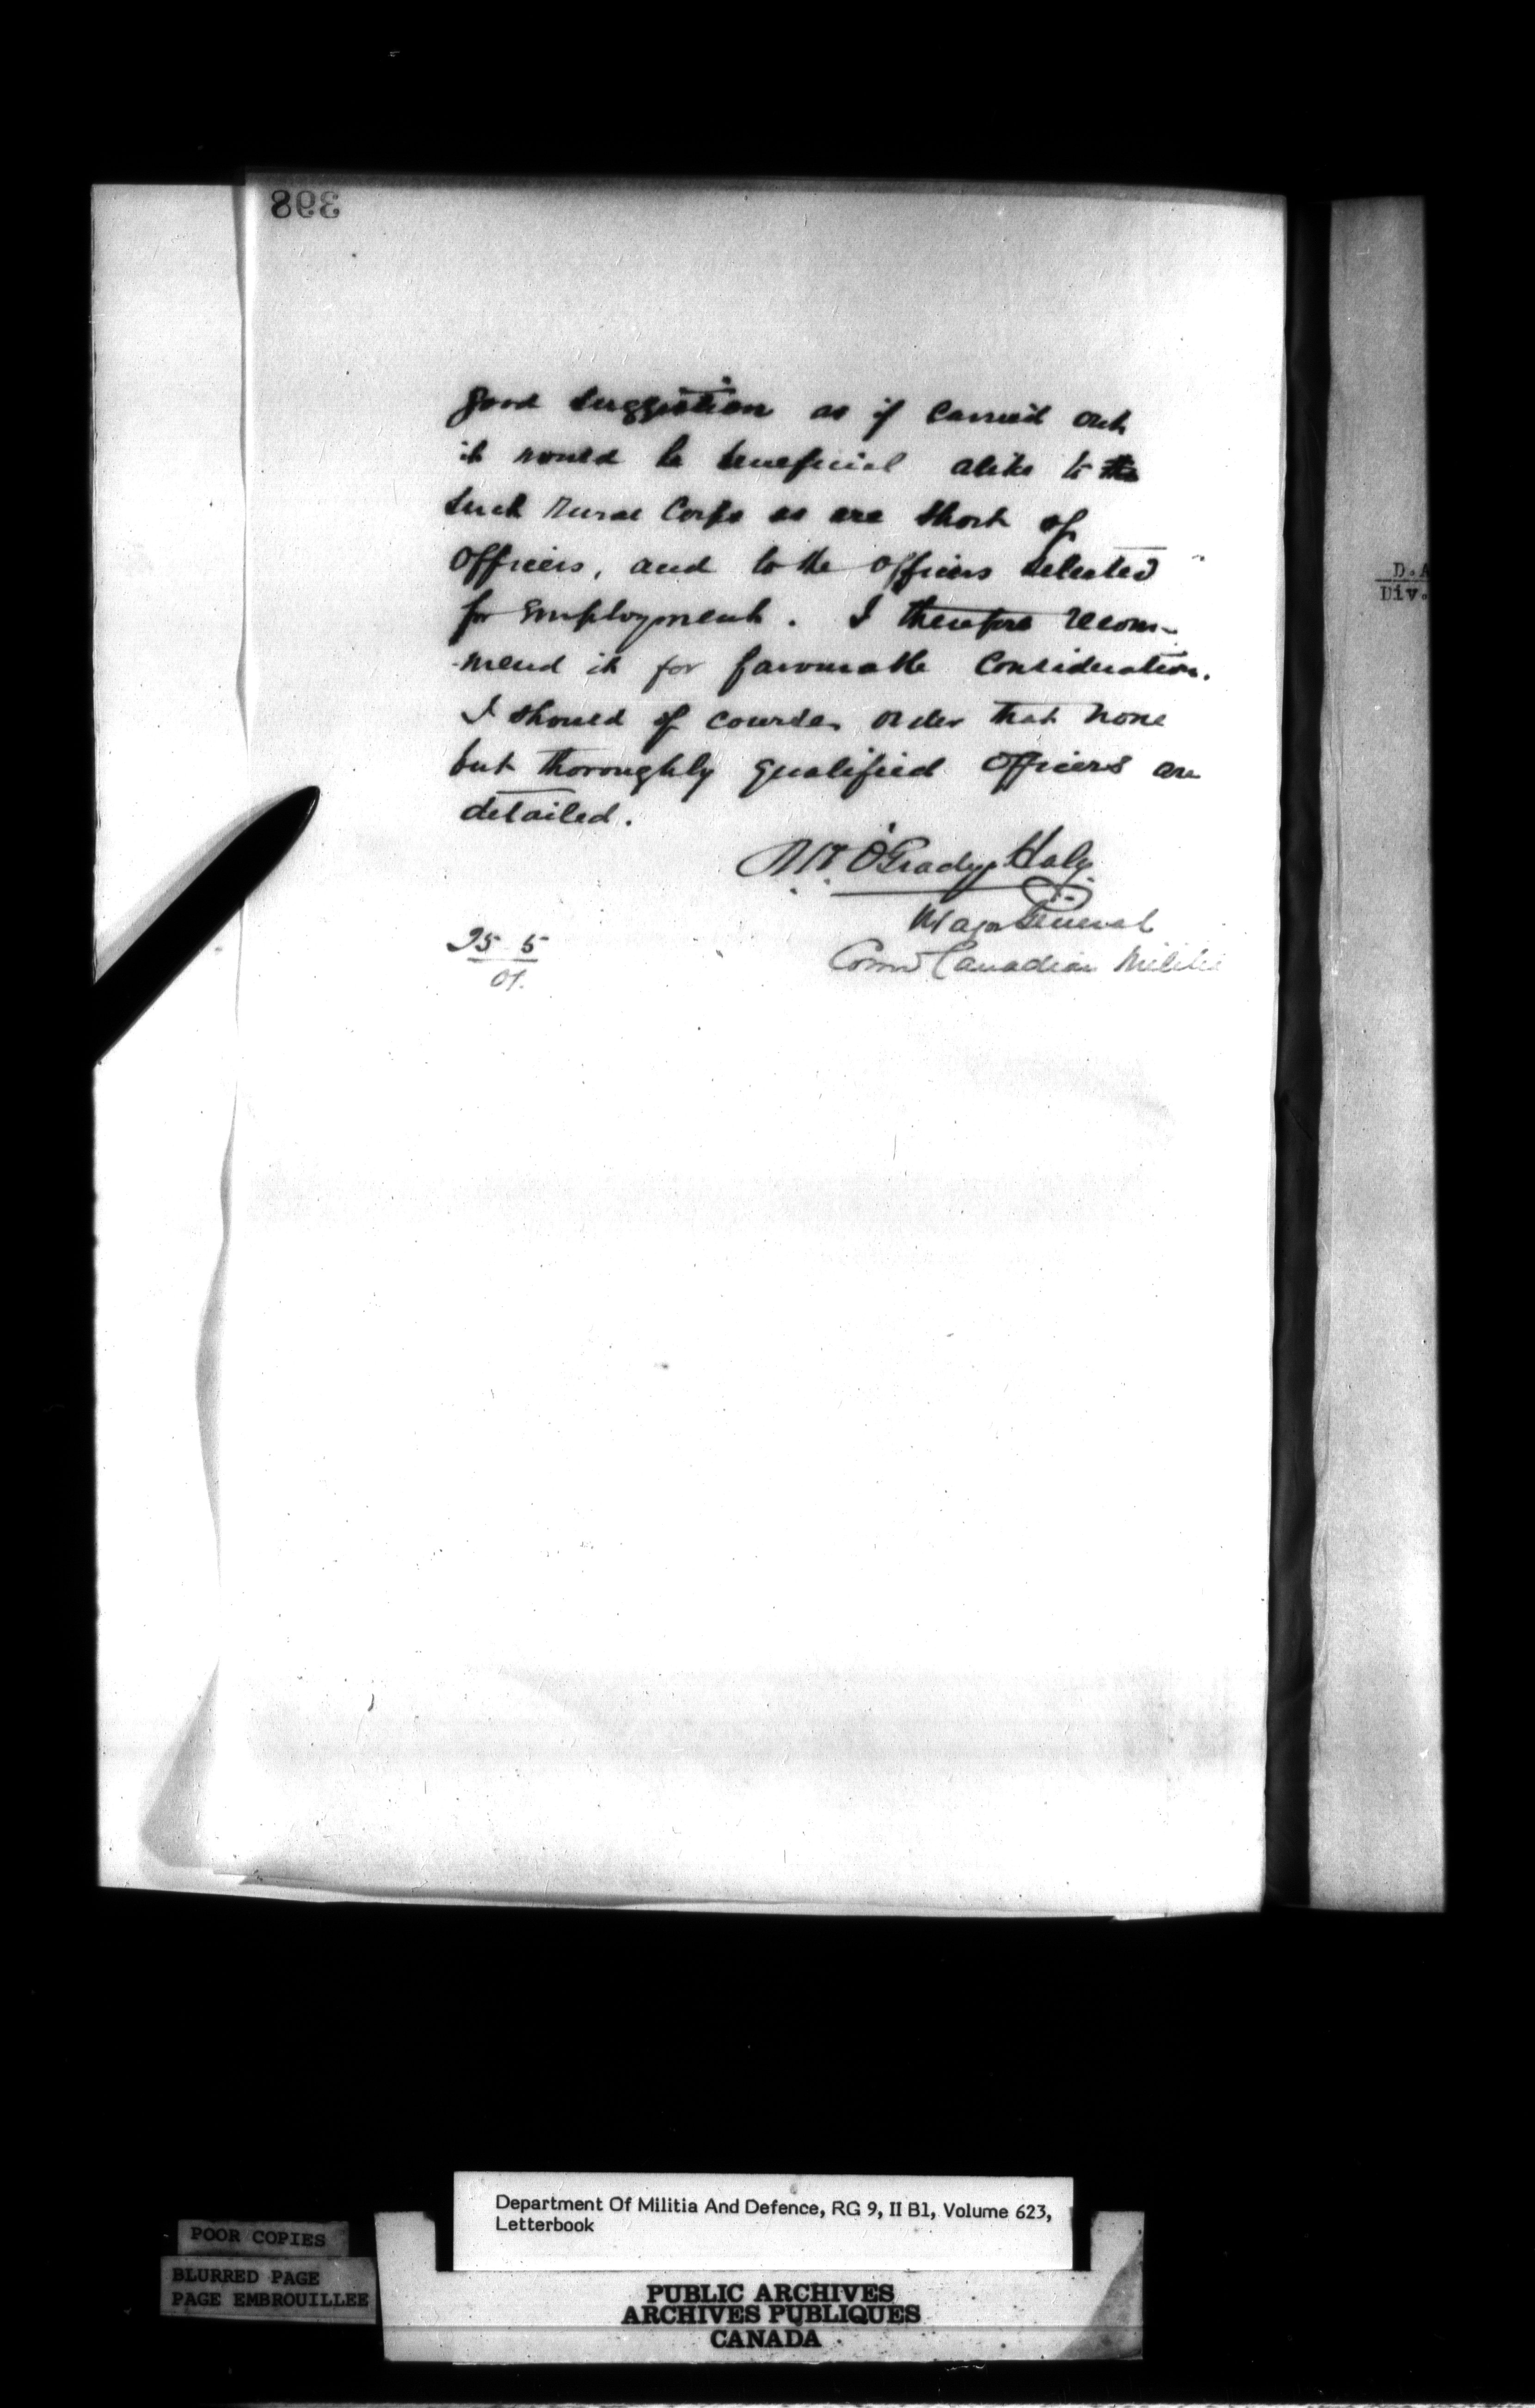 398
good suggestion as if carried out
it would be beneficial alike to the
such Rural Corps as are short of
Officers, and to the Officers selected
for employment. I therefore recom-
-mend it for favourable consideration.
I should of course order that none
but thoroughly qualified Officers are
detailed.
O'Grady Haly
Major General
Comd Canadian Militia
25 5
01.
D.A
Div.
Department Of Militia And Defence, RG 9, II B1, Volume 623,
Letterbook
POOR COPIES
BLURRED PAGE
PAGE EMBROUILLEE
PUBLIC ARCHIVES
ARCHIVES PUBLIQUES
CANADA